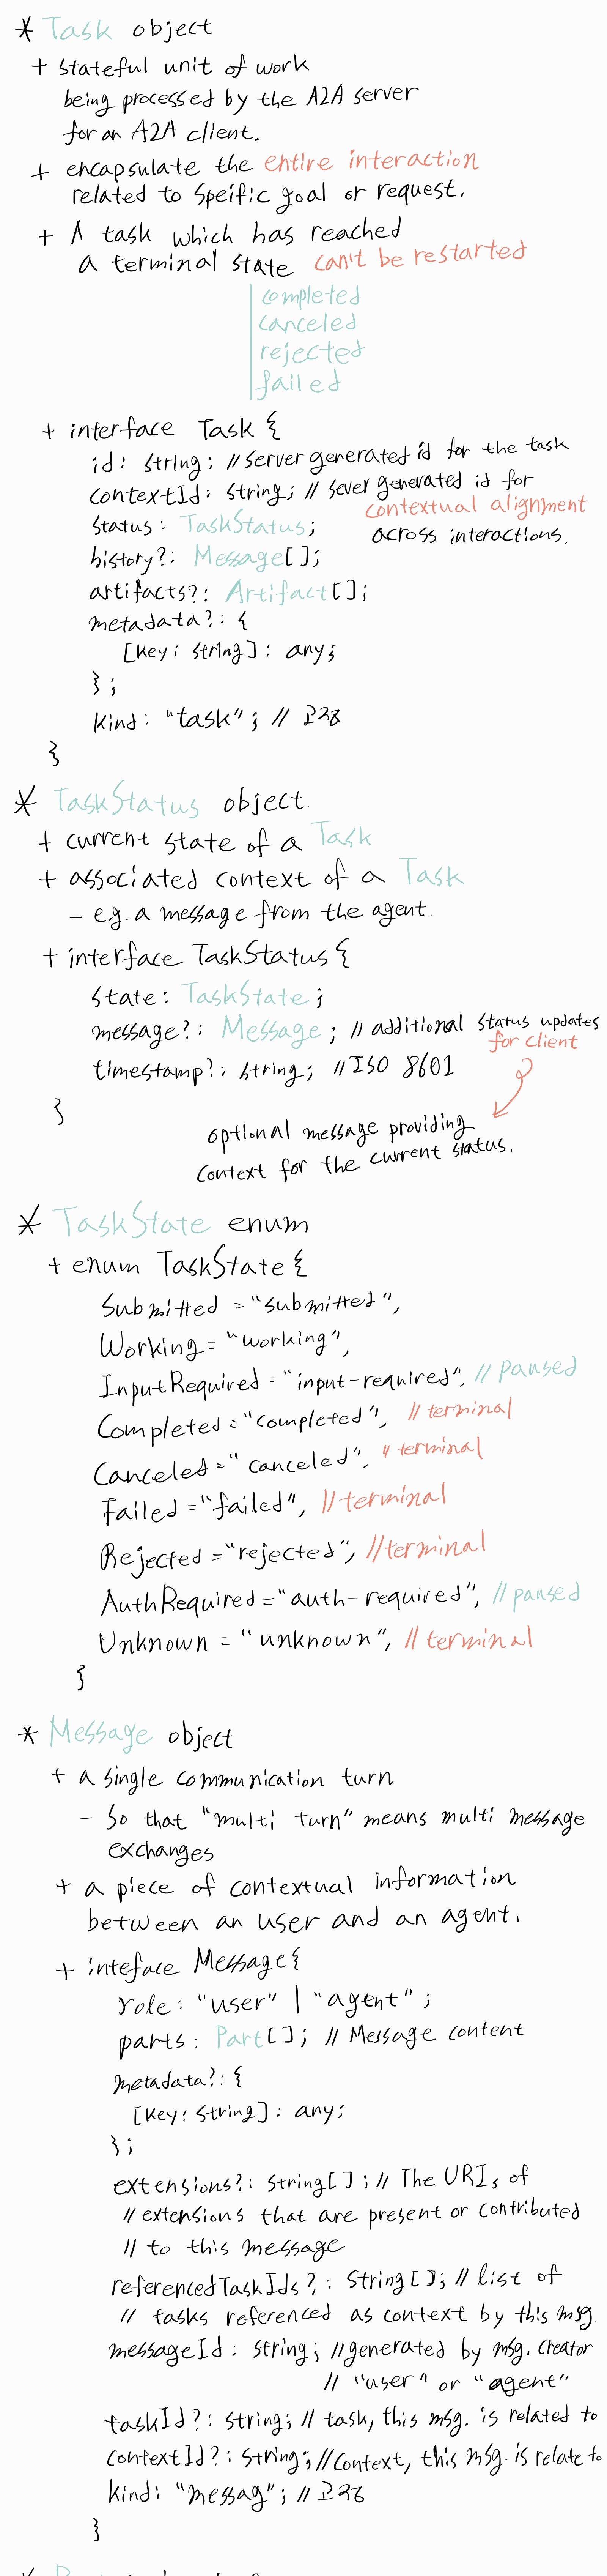 * Task object
+ stateful unit of work
being processed by the A2A server
for an A2A client.
+ encapsulate the entire interaction
related to speific goal or request.
+ A task which has reached
a terminal state can't be restarted
completed
canceled
rejected
failed
+ interface Task {
id: string; // server generated id for the task
contextId: string; // sever generated id for
contextual alignment
across interactions.
status: TaskStatus;
history?: Message[];
artifacts?: Artifact[];
metadata?: {
[key: string]: any;
};
kind: "task"; // 고정
}
* TaskStatus object.
+ current state of a Task
+ associated context of a Task
- e.g. a message from the agent.
+ interface TaskStatus {
state: TaskState;
message?: Message; // additional status updates
for client
timestamp?: string; // ISO 8601
}
optional message providing
context for the current status.
* TaskState enum
+ enum TaskState {
Submitted = "submitted",
Working = "working",
InputRequired = "input-required", // paused
Completed = "completed", // terminal
Canceled = "canceled", // terminal
Failed = "failed", // terminal
Rejected = "rejected", // terminal
AuthRequired = "auth-required", // paused
Unknown = "unknown", // terminal
}
* Message object
+ a single communication turn
- so that "multi turn" means multi message
exchanges
+ a piece of contextual information
between an user and an agent.
+ inteface Message {
role: "user" | "agent";
parts: Part[]; // Message content
metadata?: {
[key: string]: any;
};
extensions?: string[]; // The URIs of
// extensions that are present or contributed
// to this message
referencedTaskIds?: string[]; // list of
// tasks referenced as context by this msg.
messageId: string; // generated by msg. creator
// "user" or "agent"
taskId?: string; // task, this msg. is related to
contextId?: string; // context, this msg. is relate to
kind: "messag"; // 고정
}